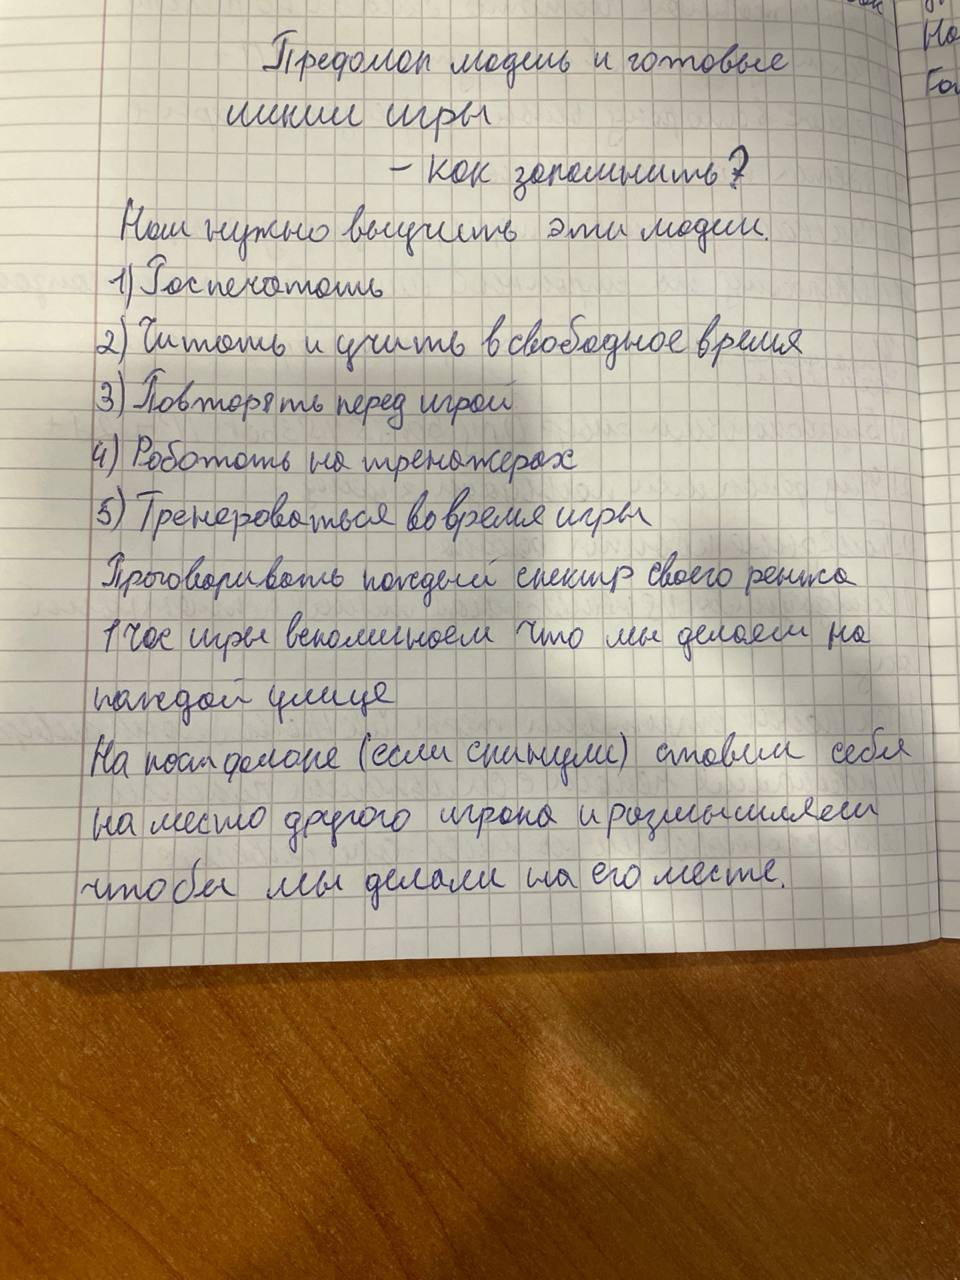 Предфлоп модель и готовые
линии игры
- как запомнить?
Нам нужно выучить эти модели.
1) Распечатать
2) Читать и учить в свободное время
3) Повторять перед игрой
4) Работать на тренажерах
5) Тренероваться во время игры
Проговаривать каждый спектр своего ренжа
1 час игры вспоминаем что мы делаем на
каждой улице
На постфлопе (если скинули) ставим себя
на место другого игрока и размышляем
чтобы мы делали на его месте.
На